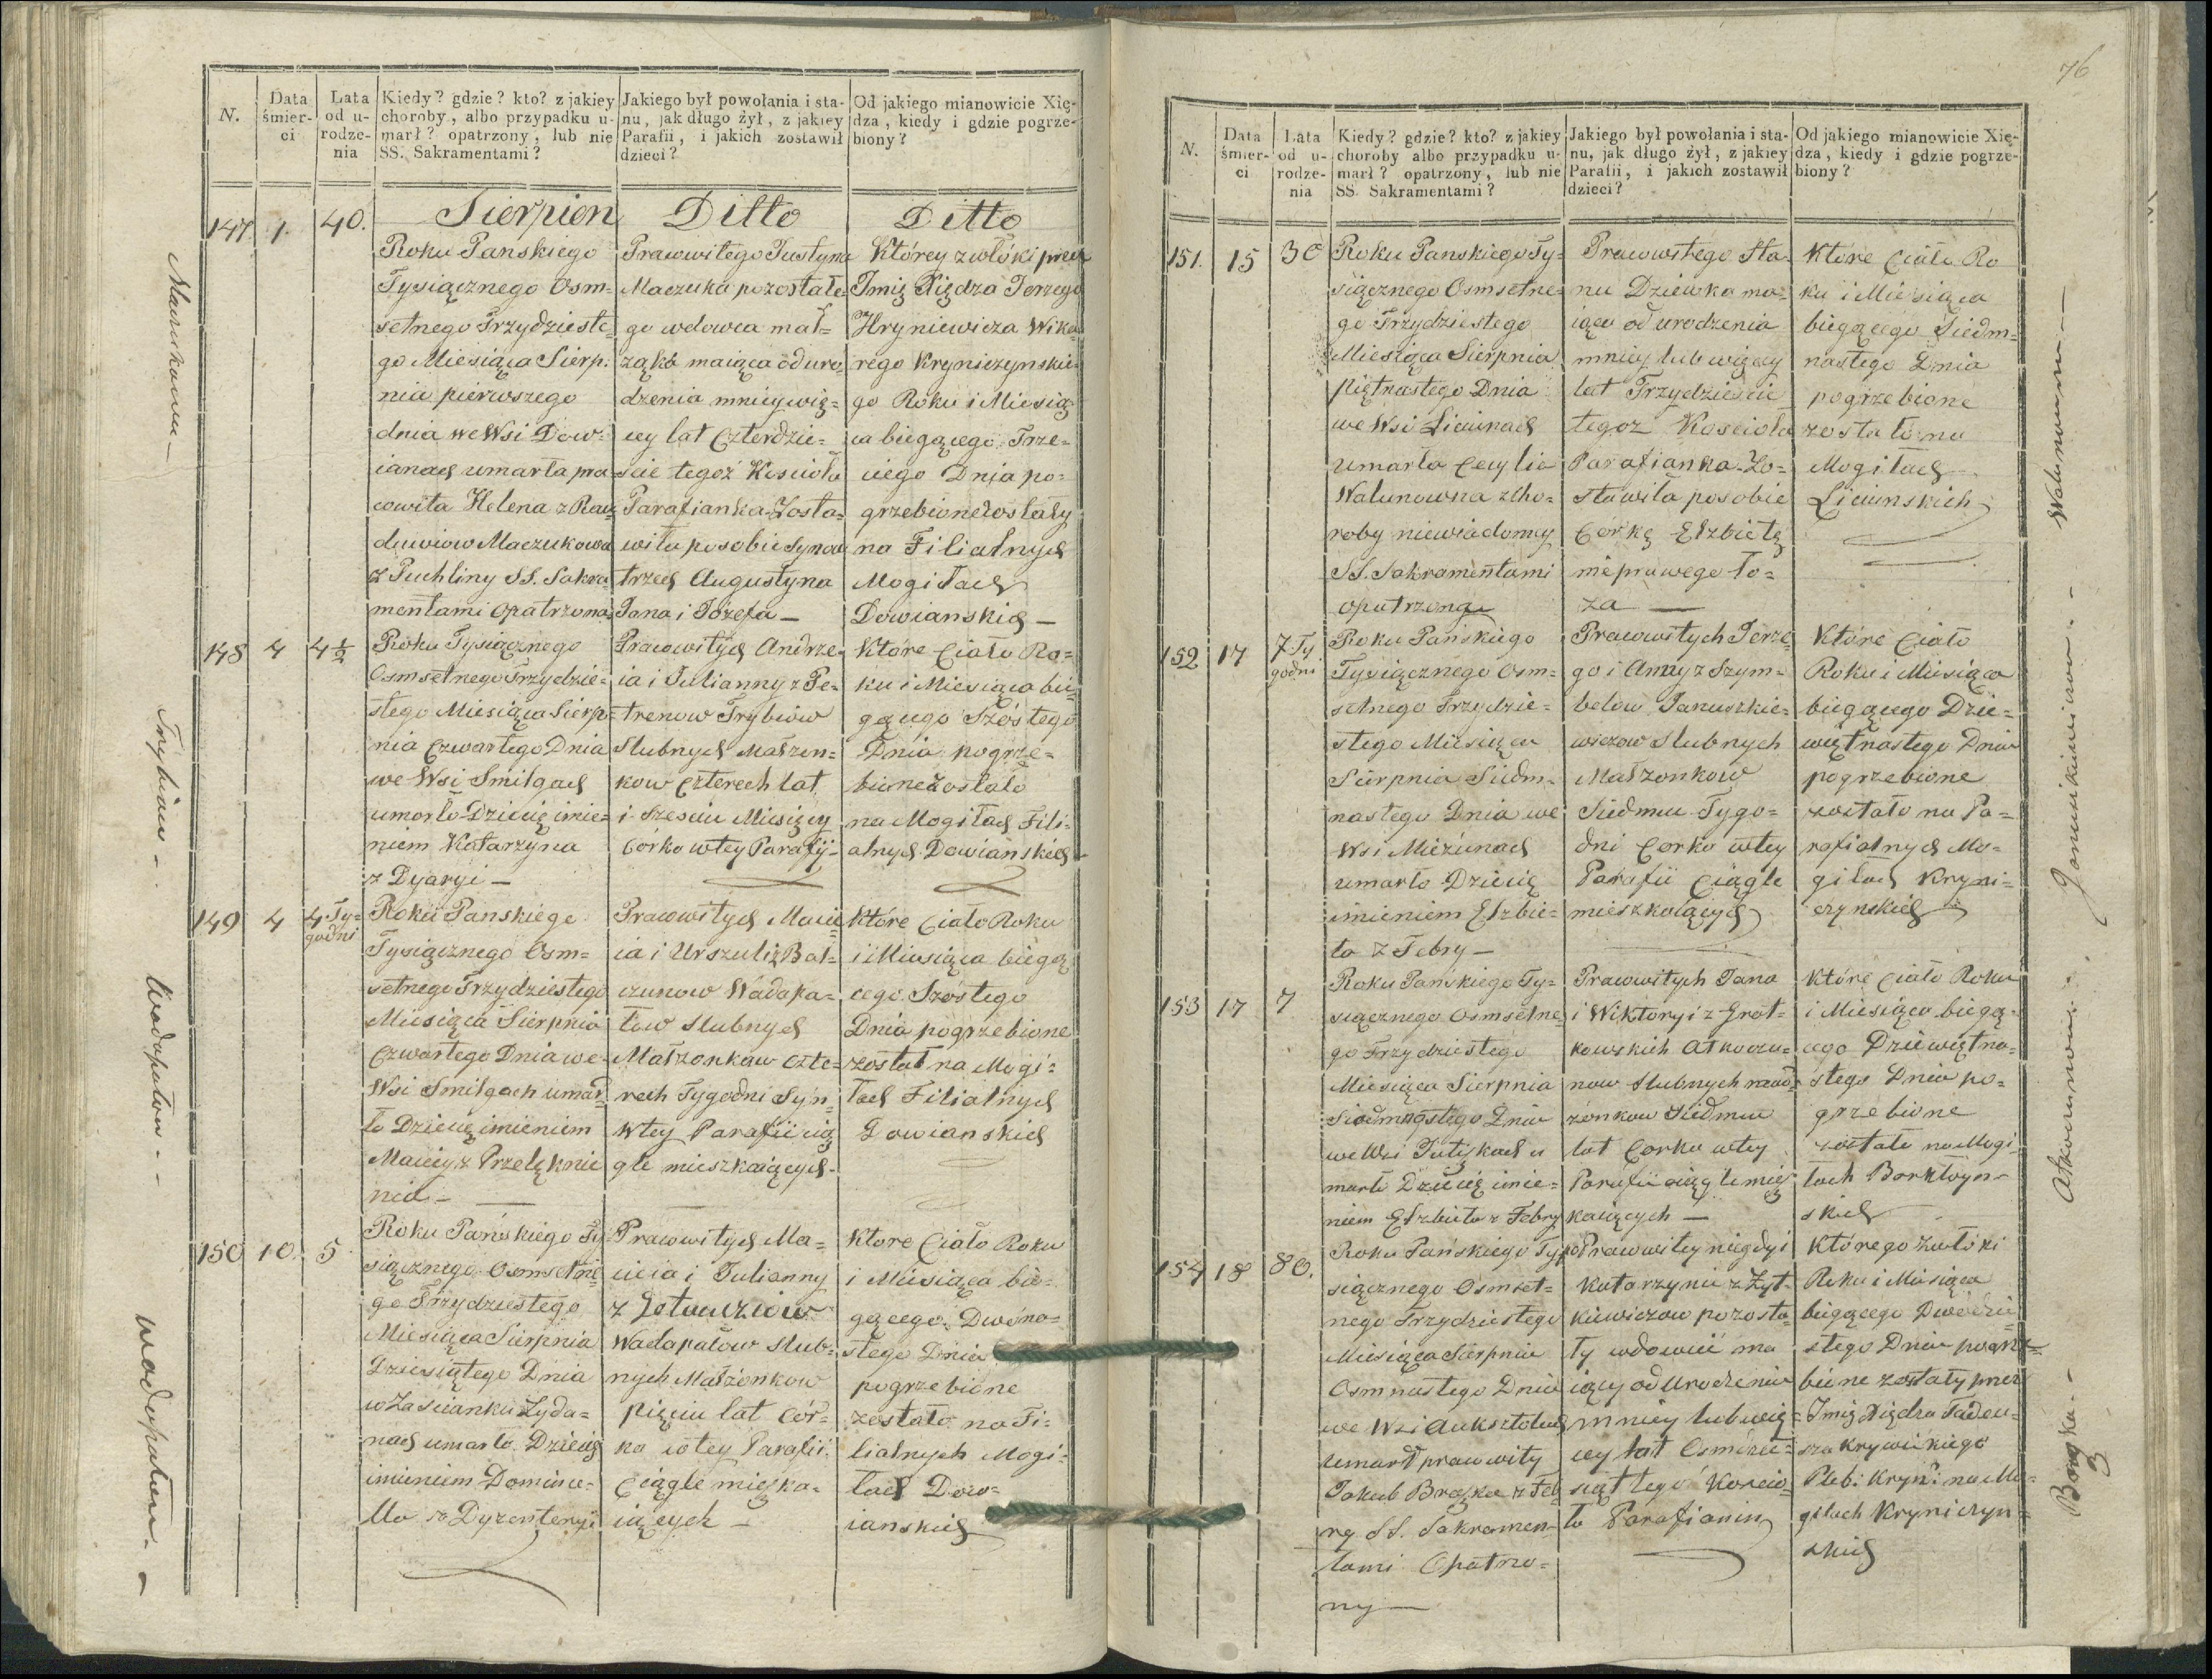 N.
Data śmier-ci
Lata od u-rodze-nia
Kiedy? gdzie? kto? z jakiey
choroby, albo przypadku u-
marł? opatrzony, lub nie
SS. Sakramentami?
Jakiego był powołania i sta-
nu, jak długo żył, z jakiey
Parafii, i jakich zostawił
dzieci?
Od jakiego mianowicie Xię-
dza, kiedy i gdzie pogrze-
biony?
Sierpien
Ditto
Ditto
147. 1. 40.
Roku Panskiego
Tysiącznego Osm-
setnego Trzydzieste
go Miesiąca Sierp.
nia pierwszego
dnia we Wsi Dow-
ianach umarła pra
cowita Helena z Rau
duwiow Maczukowa
z Puchliny SS. Sakra
mentami opatrzona
Pracowitego Justyna
Maczuka pozostałe-
go wdowca mał-
żąka maiąca od uro
dzenia mniey wię-
cey lat Czterdzie-
ście tegoż Kościoła
Parafianka Zosta-
wiła po sobie Synow
trzech Augustyna
Jana i Jozefa —
Którey zwłóki przez
Jmię Xiędza Jerzego
Hryniewicza Wika
rego Kryniczynskie
go Roku i Miesią
ca biegącego Trze-
ciego Dnia po-
grzebione zostały
na Filialnych
Mogiłach
Dowianskich —
148 4 4½
Roku Tysiącznego
Osmsetnego Trzydzie-
stego Miesiąca Sierp-
nia Czwartego Dnia
we Wsi Smilgach
umarło Dziecię imie-
niem Katarzyna
z Dyaryi —
Pracowitych Andrze
ia i Julianny z Pe-
trenow Trybiow
Slubnych Małzon-
kow Czterech lat
i Szesciu Miesięcy
Córka w tey Parafij-
Które Ciało Ro-
ku i Miesiąca bie
gącego Szóstego
Dnia pogrze-
bione zostało
na Mogiłach Fili-
alnych Dowianskich
149 4 4 Ty-
godni
Roku Panskiego
Tysiącznego Osm-
setnego Trzydziestego
Miesiąca Sierpnia
Czwartego Dnia we
Wsi Smilgach umar
ło Dziecię imieniem
Maciey z Przelęknie
nia —
Pracowitych Macie
ia i Urszuli z Bal-
czunow Wadapa-
łow slubnych
Małzonkow Czte-
rech Tygodni Syn
w tey Parafii cią
gle mieszkaiących-
Które Ciało Roku
i Miesiąca biegą
cego Szóstego
Dnia pogrzebione
został na Mogi-
łach Filialnych
Dowianskich
150 10. 5
Roku Pańskiego Ty
siącznego Osmsetne
go Trzydziestego
Miesiąca Sierpnia
Dziesiątego Dnia
w Zascianku Zyda-
nach umarło Dziecię
imieniem
z Dyzenteryi
Pracowitych Ma-
cieia i Julianny
z
Wadapałow slub-
nych Małżonkow
pięciu lat Cór-
ka w tey Parafii
Ciągle mieszka-
iących —
Które Ciało Roku
i Miesiąca bie-
gącego Dwóna-
stego Dnia
pogrzebione
zostało na Fi-
lialnych Mogi-
łach Dow-
ianskich
Maczukowa —
Trybiow —
Wadapałow —
Wadapałow —
76
N.
Data śmier-ci
Lata od u-rodze-nia
Kiedy? gdzie? kto? z jakiey
choroby albo przypadku u-
marł? opatrzony, lub nie
SS. Sakramentami?
Jakiego był powołania i sta-
nu, jak długo żył, z jakiey
Parafii, i jakich zostawił
dzieci?
Od jakiego mianowicie Xię-
dza, kiedy i gdzie pogrze-
biony?
151. 15 30
Roku Panskiego Ty-
siącznego Osmsetne-
go Trzydziestego
Miesiąca Sierpnia
piętnastego Dnia
we Wsi Liciunach
umarła Cecylia
Walunowna z Cho-
roby niewiadomey
SS. Sakramentami
opatrzona
Pracowitego Sta-
nu Dziewka ma-
iąca od urodzenia
mniey lub więcey
lat Trzydziescie
tegoż Kościoła
Parafianka Zo-
stawiła po sobie
Córkę Elzbietę
nieprawego ło-
za —
Które Ciało Ro
ku i Miesiąca
biegącego Siedm-
nastego Dnia
pogrzebione
zostało na
Mogiłach
Liciunskich
152 17 7 Ty
godni
Roku Pańskiego
Tysiącznego Osm-
setnego Trzydzie-
stego Miesiąca
Sierpnia Siedm-
nastego Dnia we
Wsi Mieżunach
umarło Dziecię
imieniem Elzbie-
ta z Febry —
Pracowitych Jerze
go i Anny z Szym-
below Januszkie-
wiczow Slubnych
Małzonkow
Siedmiu Tygo-
dni Corka w tey
Parafii Ciągle
mieszkaiących
Które Ciało
Roku i Miesiąca
biegącego Dzie-
więtnastego Dnia
pogrzebione
zostało na Pa-
rafialnych Mo-
giłach Kryni-
czynskich
153 17 7
Roku Pańskiego Ty-
siącznego Osmsetne
go Trzydziestego
Miesiąca Sierpnia
Siedmnastego Dnia
we Wsi Putyskach u
marło Dziecię imie-
niem Elzbieta z Febry
Pracowitych Jana
i Wiktoryi z Grot-
kowskich Atkoczu-
now Slubnych mał
żonkow Siedmiu
lat Corka w tey
Parafii ciągle miesz
kaiących —
Które Ciało Roku
i Miesiąca biegą-
cego Dziewiętna-
stego Dnia po-
grzebione
zostało na Mogi
łach Borkłoyn-
skich
154 18 80.
Roku Pańskiego Ty
siącznego Osmset-
nego Trzydziestego
Miesiąca Sierpnia
Osmnastego Dnia
we Wsi Auksztolach
umarł pracowity
Jakub Brażka z Feb
rę SS. Sakramen-
tami Opatrzo-
ny —
po Pracowitey niegdyś
Katarzynie z Żyt-
kiewiczow pozosta-
ły wdowiec ma
iący od Urodzenia
mniey lub wię-
cey lat Osmdzie-
siąt tegoż Koscio-
ła Parafianin
Którego zwłóki
Roku i Miesiąca
biegącego Dwódzie
stego Dnia pogrze-
bione zostały przez
Jmię Xiędza Tadeu-
sza Krywickiego
Pleb: Kryn: na Mo-
giłach Kryniczyn-
skich
Walunowna —
Januszkiewiczow. —
Atkoczunow. —